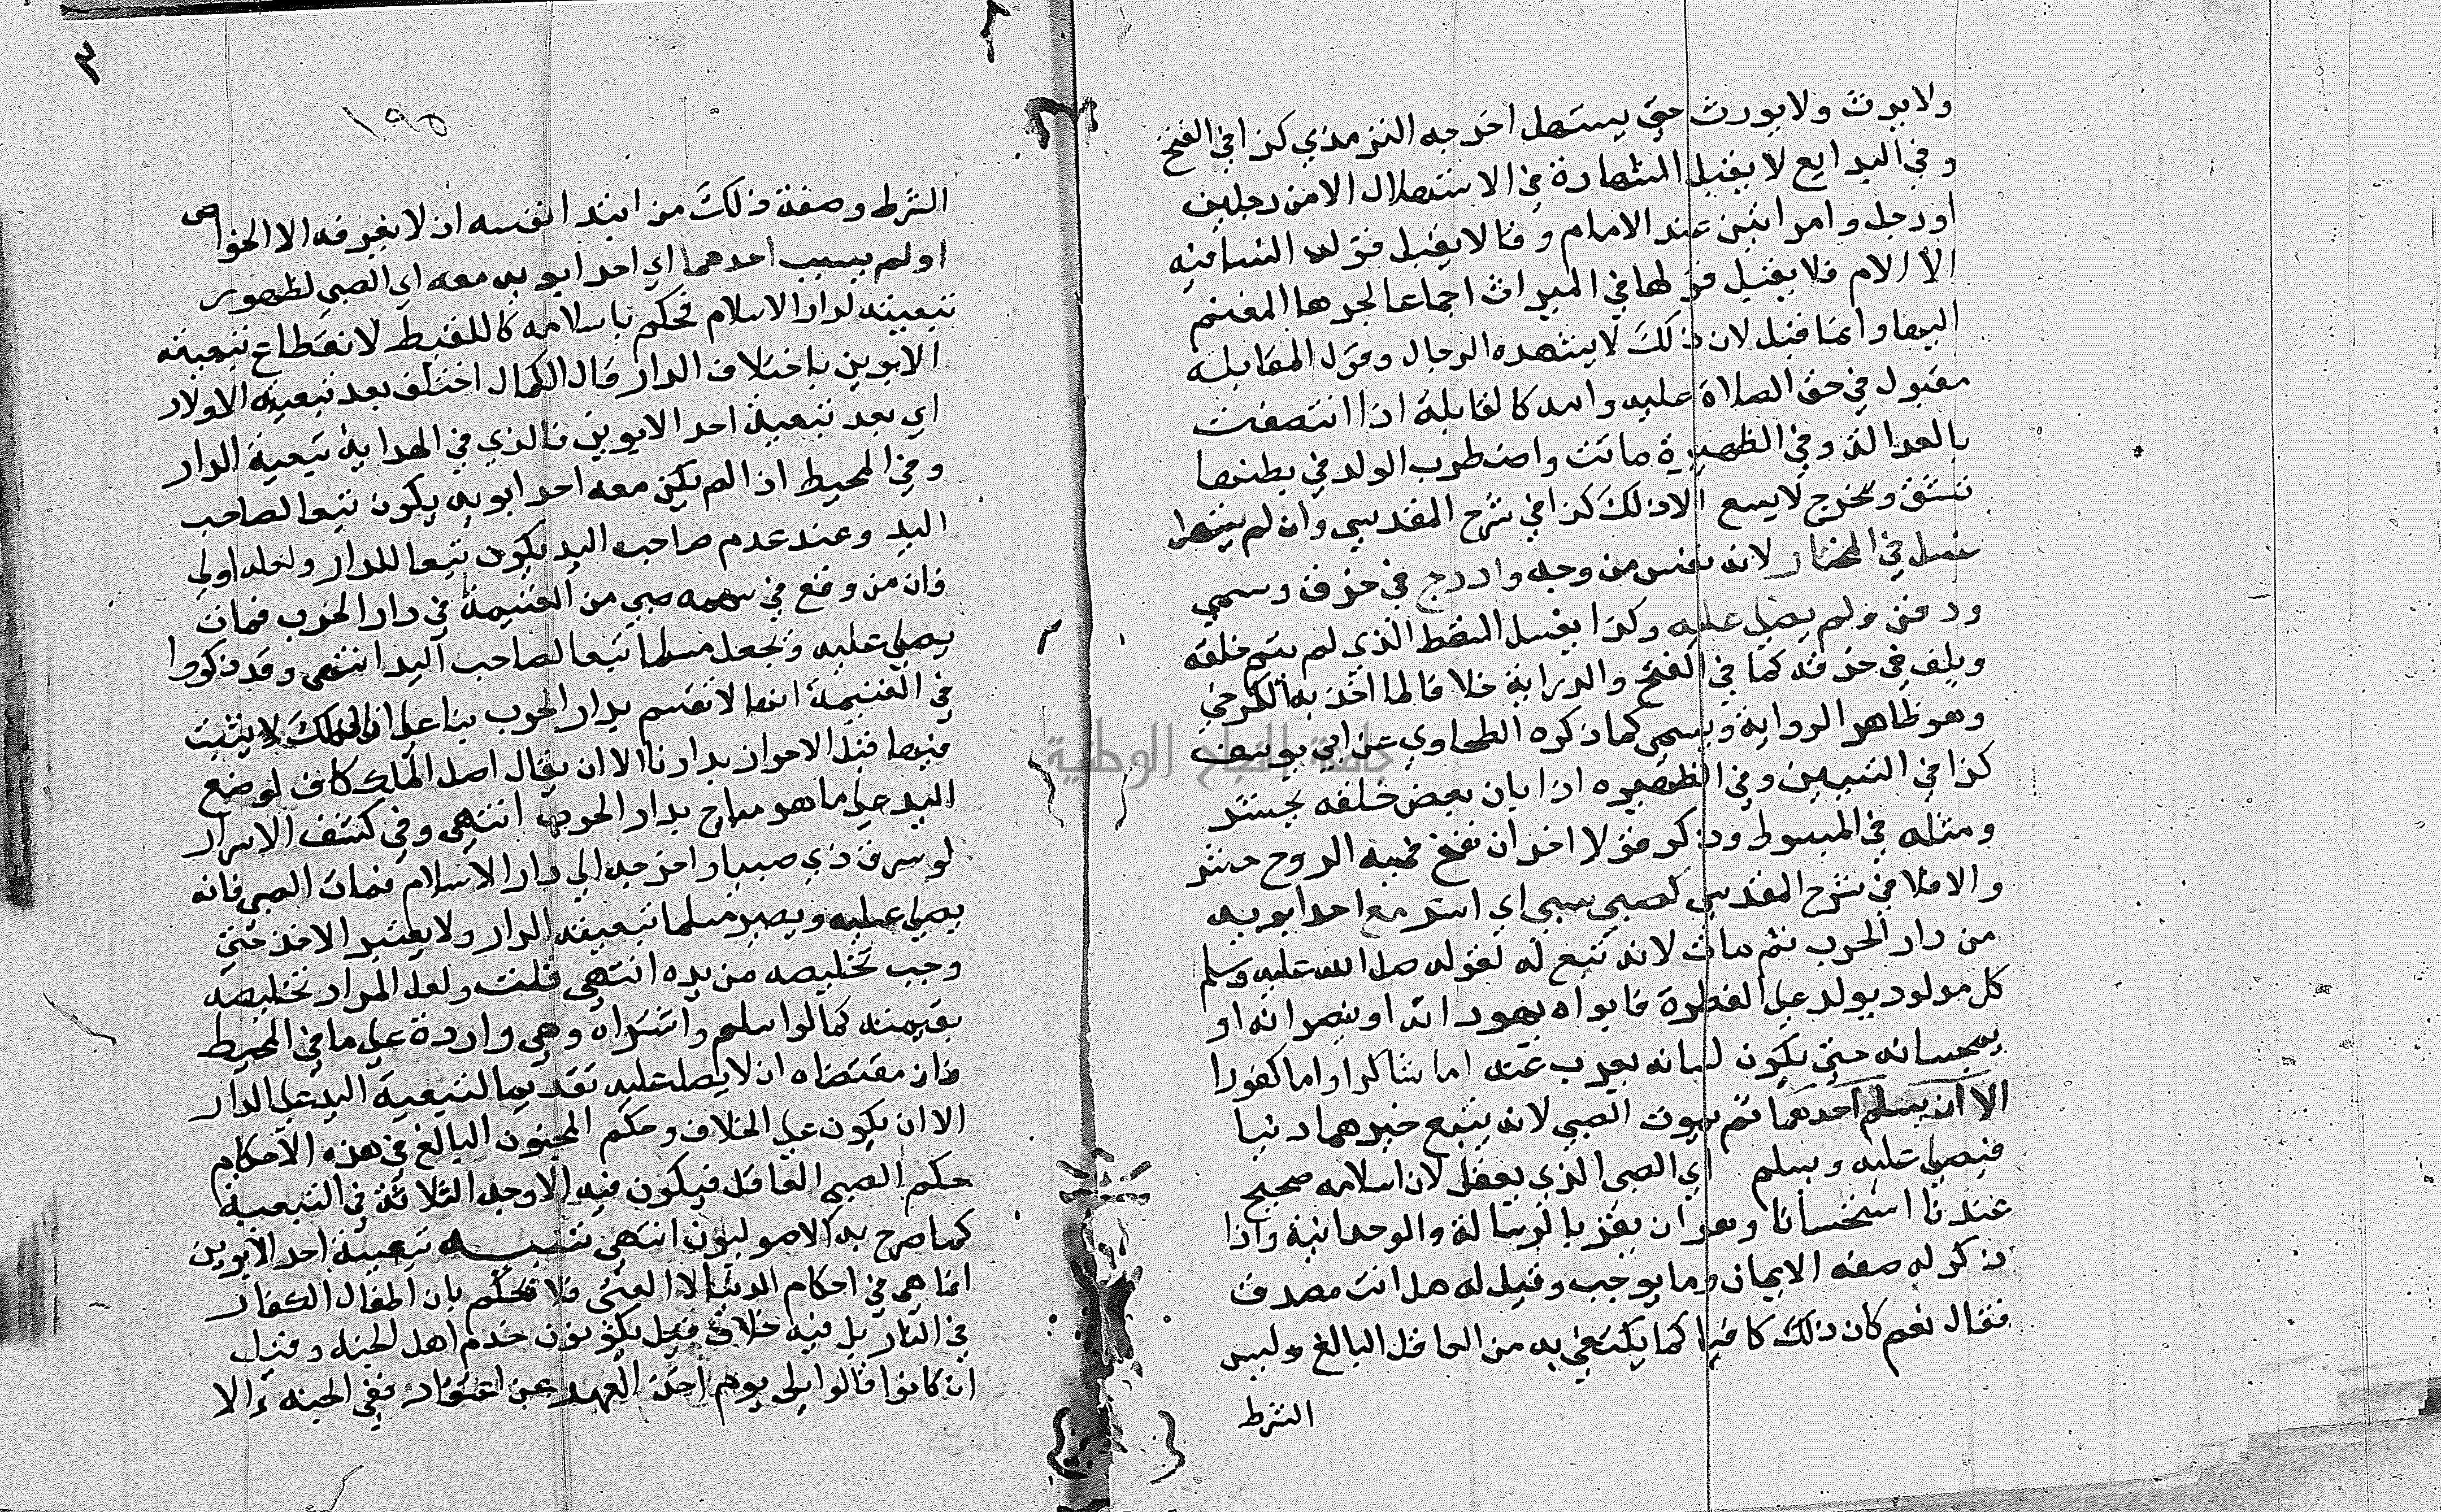 ولا يرث ولا يورث حتى يستهل اخرجه الترمذي كذا في الفتح
وفي البدايع لا يقبل الشهادة في الاستهلال الا من رجلين
اورجل وامراتين عند الامام وقالا يقبل قول النسا فيه
الا الام فلا يقبل قولها في الميراث اجماعا لجرها المغنم
اليها وانما قبل لان ذلك لا يشهده الرجال وقول القابلة
مقبول في حق الصلاة عليه وامه كالقابلة اذا اتصفت
بالعدالة وفي الظهيرة ماتت واضطرب الولد في بطنها
تشق وتخرج لا يسع الا ذلك كذا في شرح المقدسي وان لم يستهل
غسل في المختار لانه نفس من وجه وادرج في خرقة وسمي
ودفن ولم يصل عليه وكذا يغسل السقط الذي لم يتم خلقه
ويلف في خرقه كما في الفتح والدراية خلافا لما اخذ به الكرخي
وهو ظاهر الرواية ويسمى كما ذكره الطحاوي عن ابي يوسف
كذا في التبيين وفي الظهيره اذا بان بعض خلقه يحشر
ومثله في المبسوط وذكر قولا اخر ان نفخ فيه الروح حشر
والا فلا في شرح المقدسي كصبي سبي اي اسر مع احد ابويه
من دار الحرب ثم مات لانه تبع له لقوله صلى الله عليه وسلم
كل مولود يولد على الفطرة فابواه يهودانه او ينصرانه او
يمجسانه حتى يكون لسانه يعرب عنه اما شاكرا واما كفورا
الا ان يسلم احدهما ثم يموت الصبي لانه يتبع خيرهما دينا
فيصلى عليه ويسلم اي الصبي الذي يعقل لان اسلامه صحيح
عندنا استحسانا وهو ان يقر بالرسالة والوحدانية واذا
ذكر له صفه الايمان وما يوجب وقيل له هل انت مصدق
فقال نعم كان ذلك كافيا كما يكتفى به من العاقل البالغ وليس
الشرط
٢
٣
١٩٥
الشرط وصفة ذلك من ابتدا نفسه اذ لا يعرفه الا الخواص
او لم يسب احدهما اي احد ابويه معه اي الصبي لظهور
تبعيته لدار الاسلام فحكم باسلامه كاللقيط لانقطاع تبعيته
الابوين باختلاف الدار قال الكمال اختلف بعد تبعيه الاولاد
اي بعد تبعية احد الابوين فالذي في الهداية تبعية الدار
وفي المحيط اذا لم يكن معه احد ابويه يكون تبعا لصاحب
اليد وعند عدم صاحب اليد يكون تبعا للدار ولعله اولى
فان من وقع في سهمه صبي من الغنيمة في دار الحرب فمات
يصلى عليه ويجعل مسلما تبعا لصاحب اليد انتهى وقد ذكروا
في الغنيمة انها لا تقسم بدار الحرب بنا على ان الملك لا يثبت
فيها قبل الاحراز بدارنا الا ان يقال اصل الملك كاف لوضع
اليد على ما هو مباح بدار الحرب انتهى وفي كشف الاسرار
لو سرق ذمي صبيا واخرجه الى دار الاسلام فمات الصبي فانه
يصلى عليه ويصير مسلما تبعيته الدار ولا يعتبر الاخذ حتى
وجب تخليصه من يده انتهى قلت ولعل المراد تخليصه
بقيمته كما لو اسلم واشتراه وهي واردة على ما في المحيط
فان مقتضاه ان لا يصل عليه تقديما لتبعية اليد على الدار
الا ان يكون على الخلاف وحكم المجنون البالغ في هذه الاحكام
حكم الصبي العاقل فيكون فيه الاوجه الثلاثة في التبعية
كما صرح به الاصوليون انتهى تنبيه تبعية احد الابوين
انما هي في احكام الدنيا لا العقبى فلا يحكم بان اطفال الكفار
في النار بل فيه خلاف فقيل يكونون خدم اهل الجنه وقيل
ان كانوا قالوا بلى يوم اخذ العهد عن اعتقاد ففي الجنه والا
جامعة النجاح الوطنية